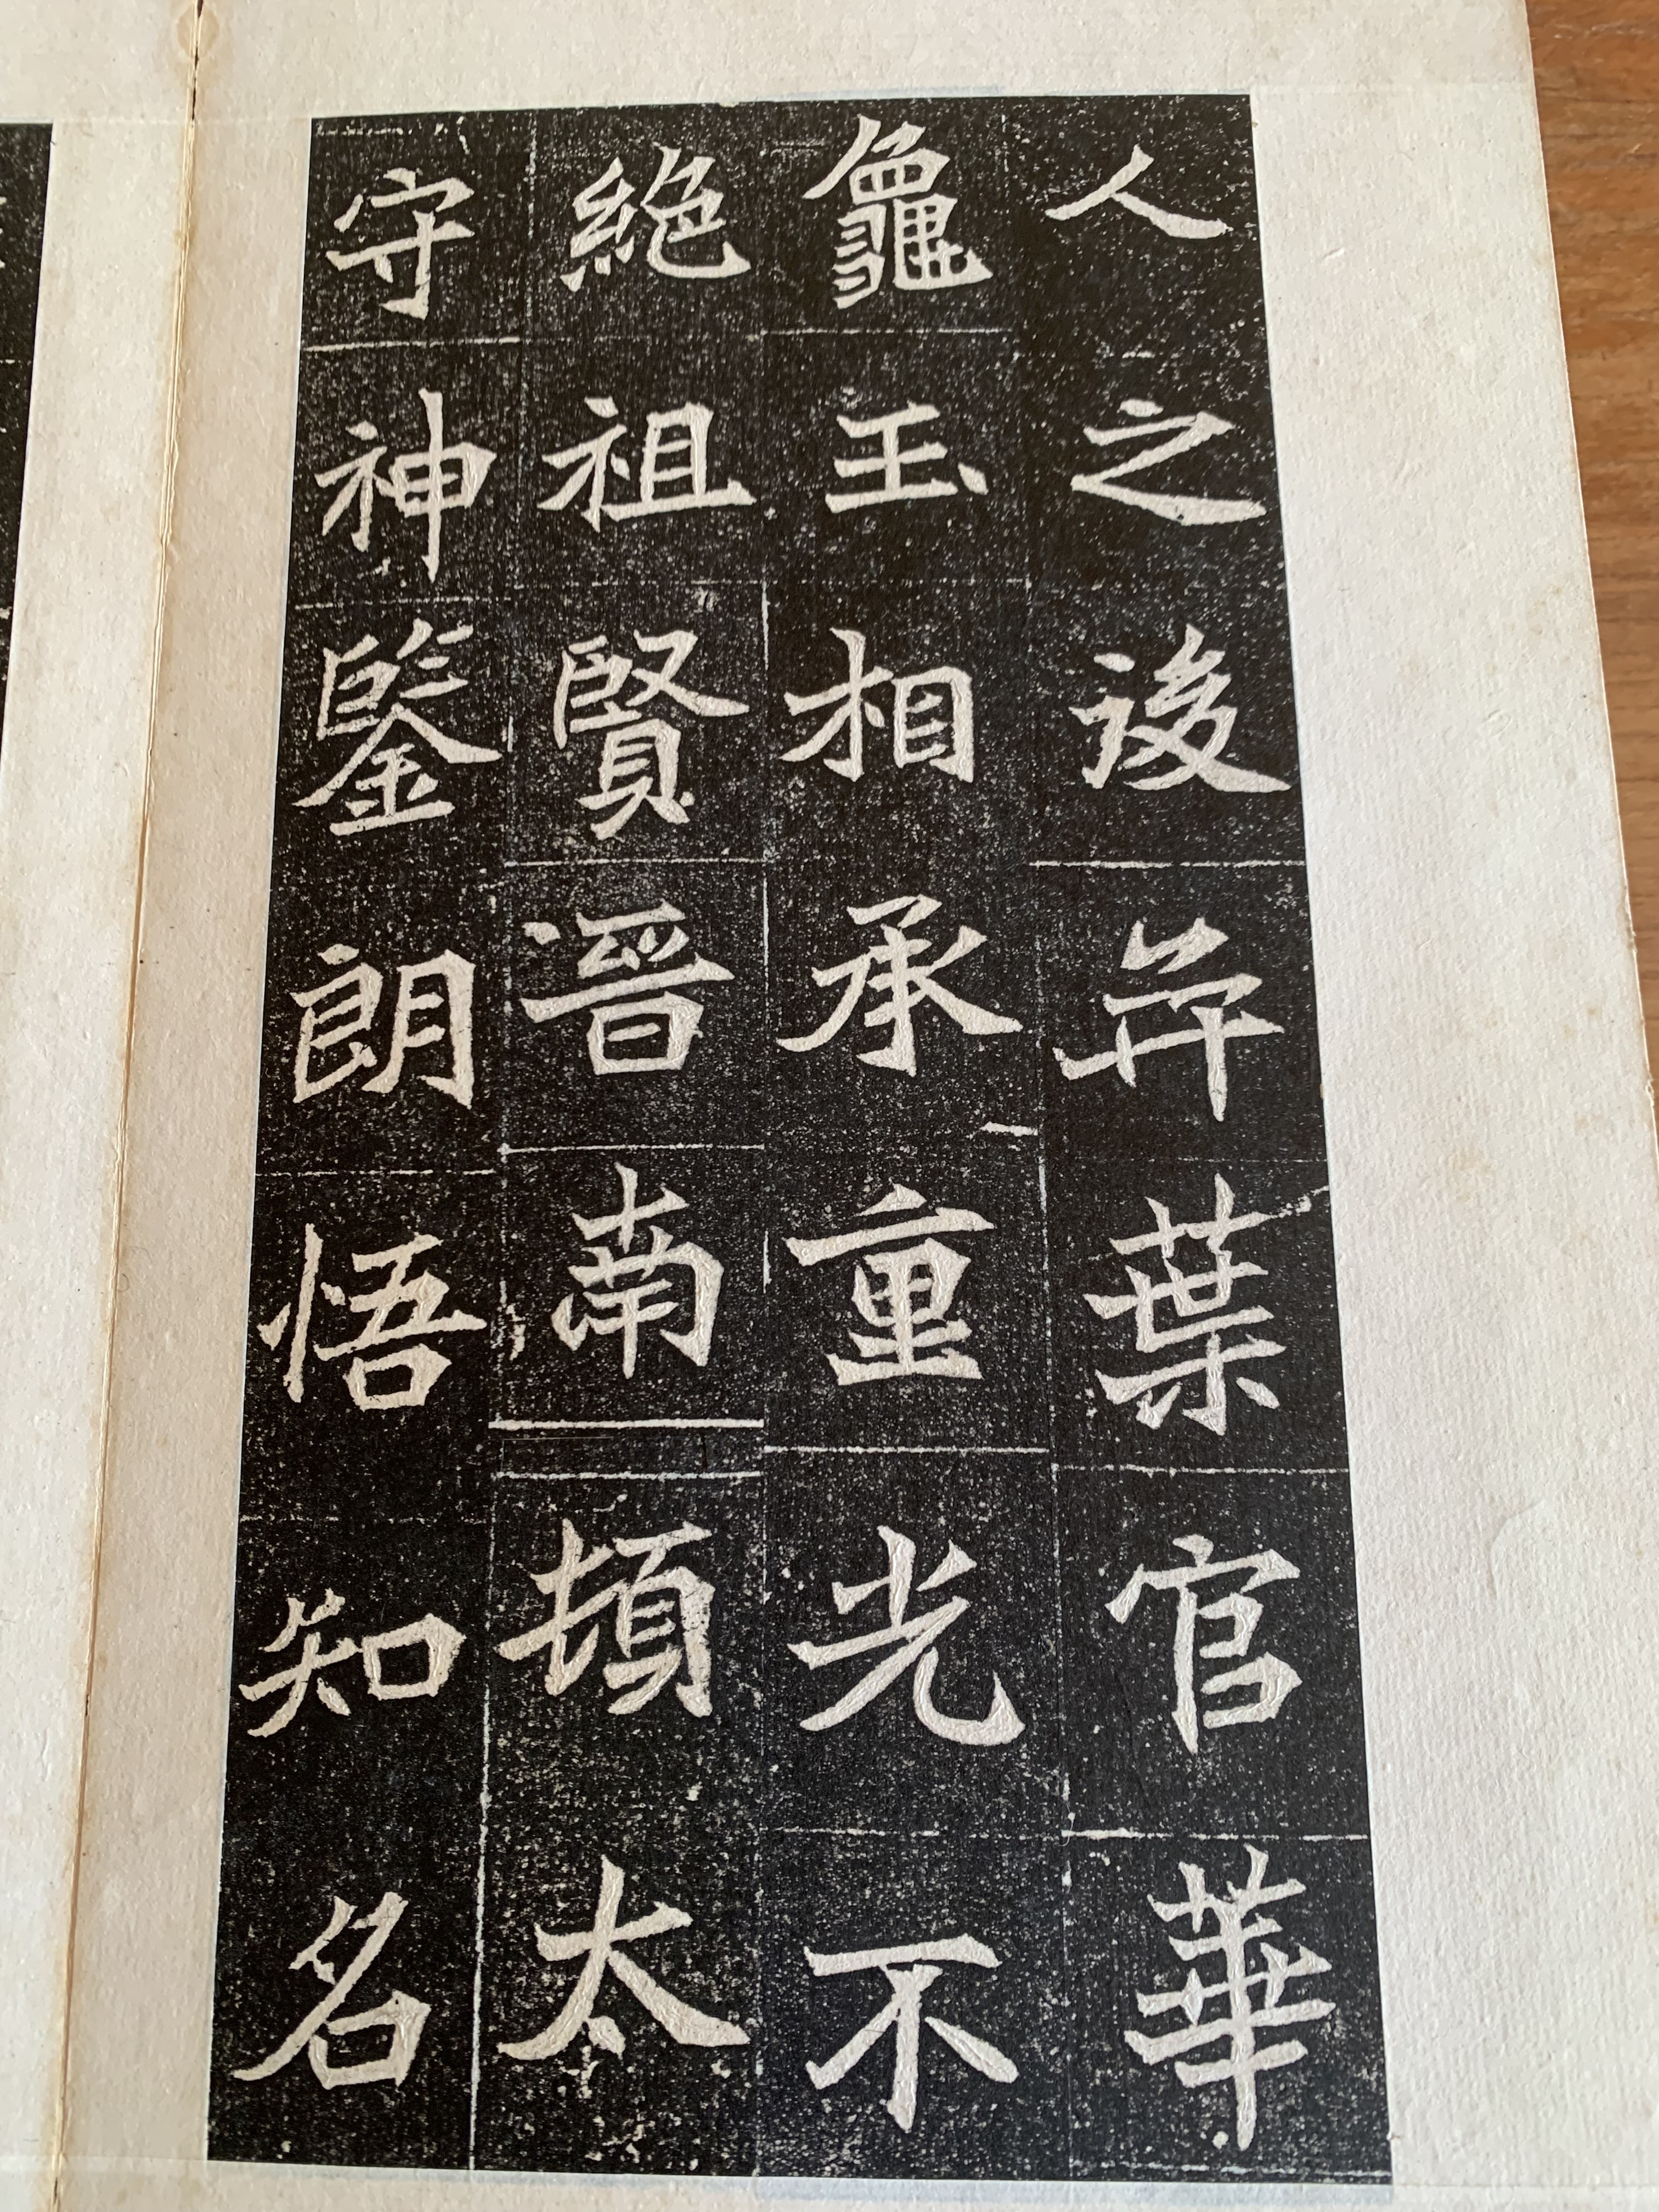 人之後幷葉官華
龜玉相承重光不
絶祖賢晉南頓太
守神鑒朗悟知名